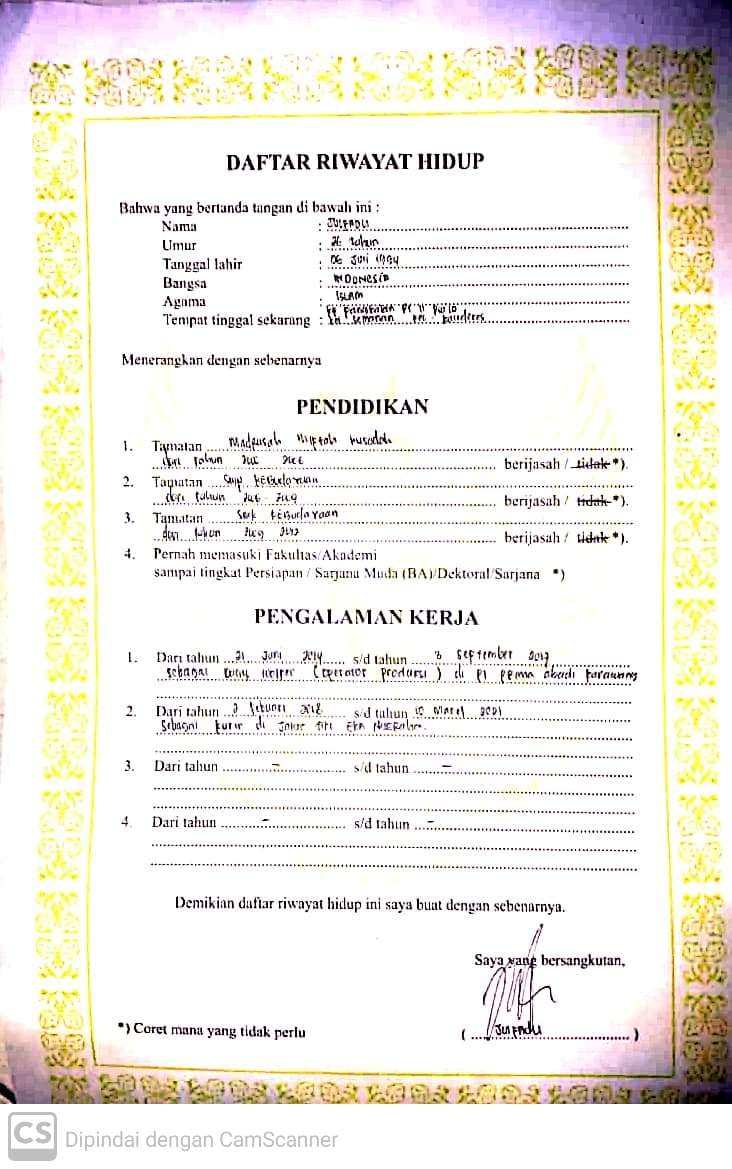 DAFTAR RIWAYAT HIDUP
Bahwa yang bertanda tangan di bawah ini :
Nama : JULFADLI
Umur : 26 tahun
Tanggal lahir : 06 Juni 1994
Bangsa : INDONESIA
Agama : ISLAM
Tempat tinggal sekarang :
Menerangkan dengan sebenarnya
PENDIDIKAN
1. Tamatan Madrasah
dari tahun berijasah / tidak *).
2. Tamatan
dari tahun berijasah / tidak *).
3. Tamatan
dari tahun berijasah / tidak *).
4. Pernah memasuki Fakultas/Akademi
sampai tingkat Persiapan / Sarjana Muda (BA)/Dektoral/Sarjana *)
PENGALAMAN KERJA
1. Dari tahun 21 Juni 2014 s/d tahun 3 September 2017
sebagai helper (operator produksi) di PT abadi karawang
2. Dari tahun 2 februari 2018 s/d tahun 10 Maret 2021
sebagai kurir di
3. Dari tahun - s/d tahun -
4. Dari tahun - s/d tahun -
Demikian daftar riwayat hidup ini saya buat dengan sebenarnya.
Saya yang bersangkutan,
*) Coret mana yang tidak perlu
( JULFADLI )
CS Dipindai dengan CamScanner